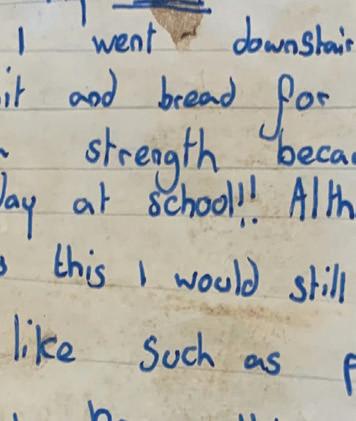 I went downstair
it and bread for
strength beca
day at school!! Alth
s this I would still
like such as f